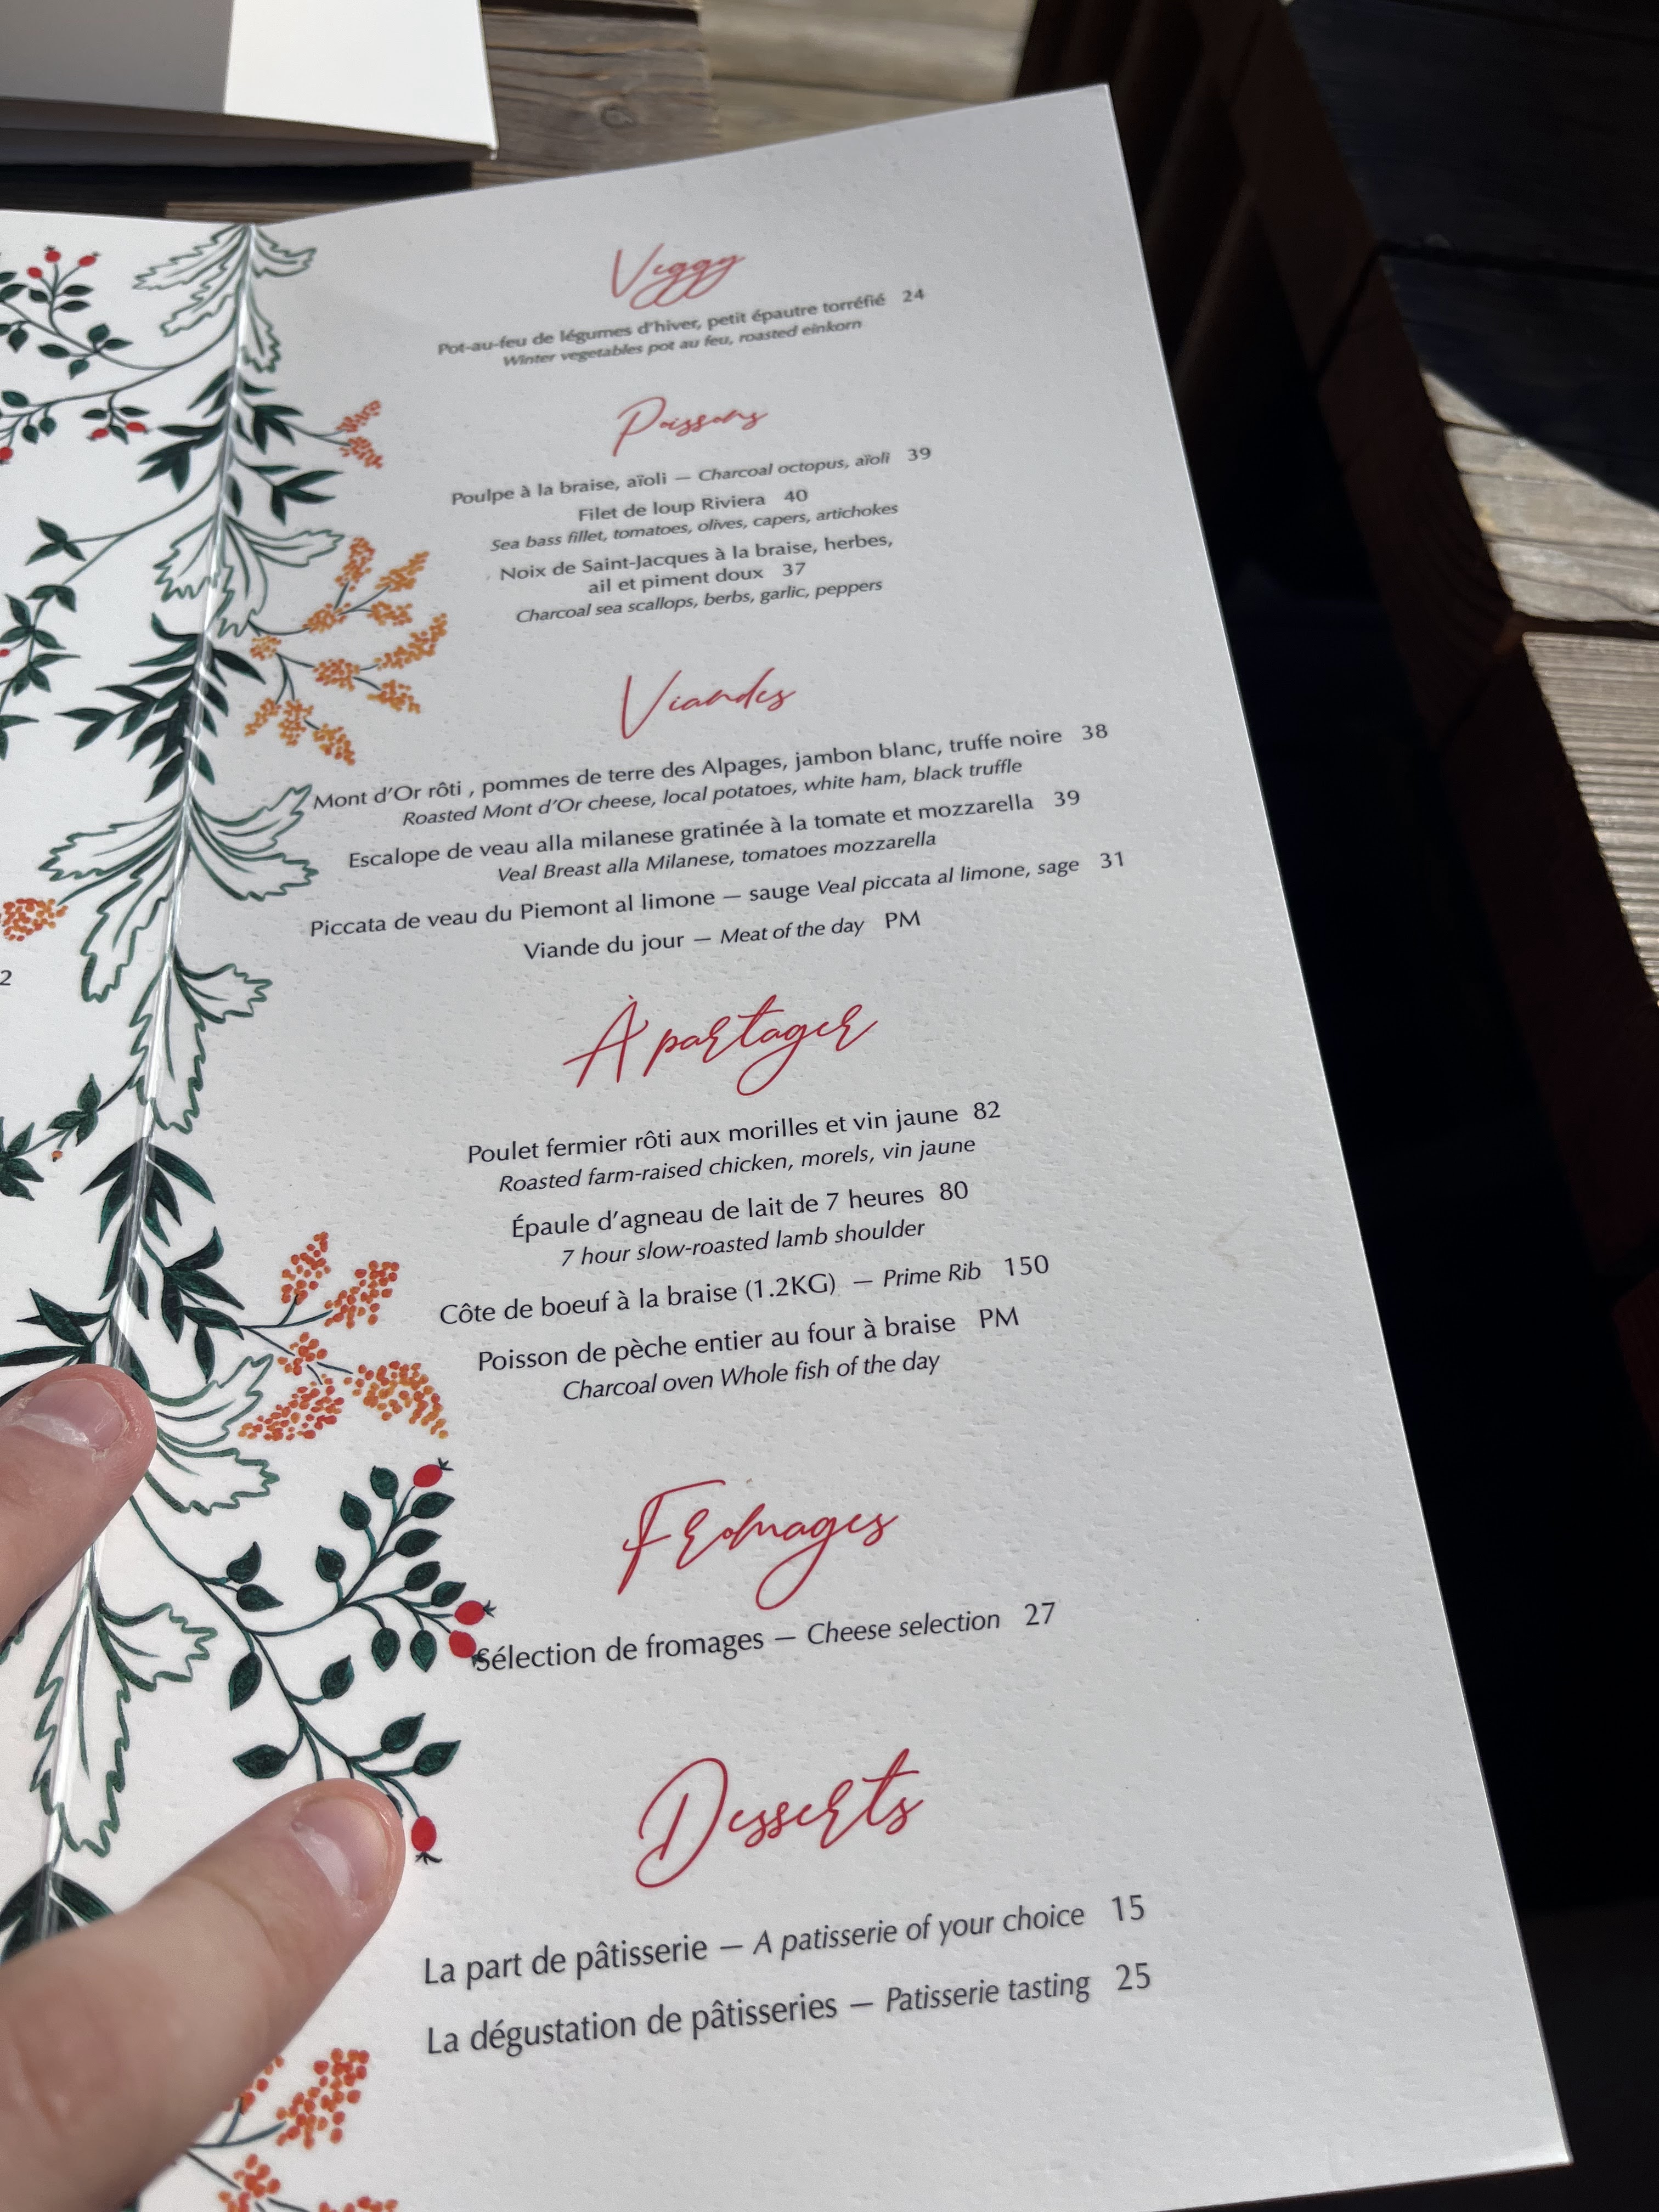 2
Veggy
Pot-au-feu de légumes d'hiver, petit épautre torréfié 24
Winter vegetables pot au feu, roasted einkorn
Poissons
Poulpe à la braise, aïoli — Charcoal octopus, aïoli 39
Filet de loup Riviera 40
Sea bass fillet, tomatoes, olives, capers, artichokes
Noix de Saint-Jacques à la braise, herbes,
ail et piment doux 37
Charcoal sea scallops, berbs, garlic, peppers
Viandes
Mont d'Or rôti , pommes de terre des Alpages, jambon blanc, truffe noire 38
Roasted Mont d'Or cheese, local potatoes, white ham, black truffle
Escalope de veau alla milanese gratinée à la tomate et mozzarella 39
Veal Breast alla Milanese, tomatoes mozzarella
Piccata de veau du Piemont al limone — sauge Veal piccata al limone, sage 31
Viande du jour — Meat of the day PM
À partager
Poulet fermier rôti aux morilles et vin jaune 82
Roasted farm-raised chicken, morels, vin jaune
Épaule d'agneau de lait de 7 heures 80
7 hour slow-roasted lamb shoulder
Côte de boeuf à la braise (1.2KG) — Prime Rib 150
Poisson de pèche entier au four à braise PM
Charcoal oven Whole fish of the day
Fromages
Sélection de fromages — Cheese selection 27
Desserts
La part de pâtisserie — A patisserie of your choice 15
La dégustation de pâtisseries — Patisserie tasting 25